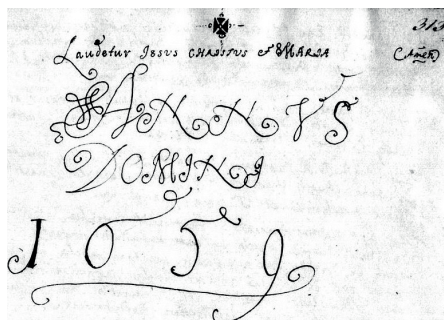 313
Laudetur Jesus CHRISTUS et MARIA
ANNVS
DOMINI
1659